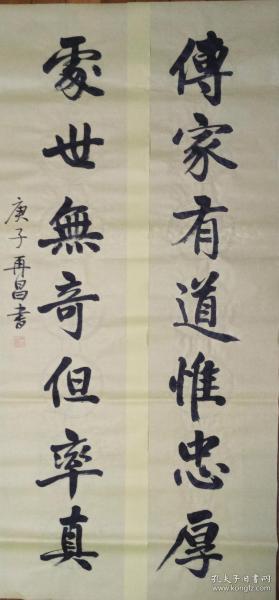 傳家有道惟忠厚
處世無奇但率真
庚子再昌書
孔夫子旧书网